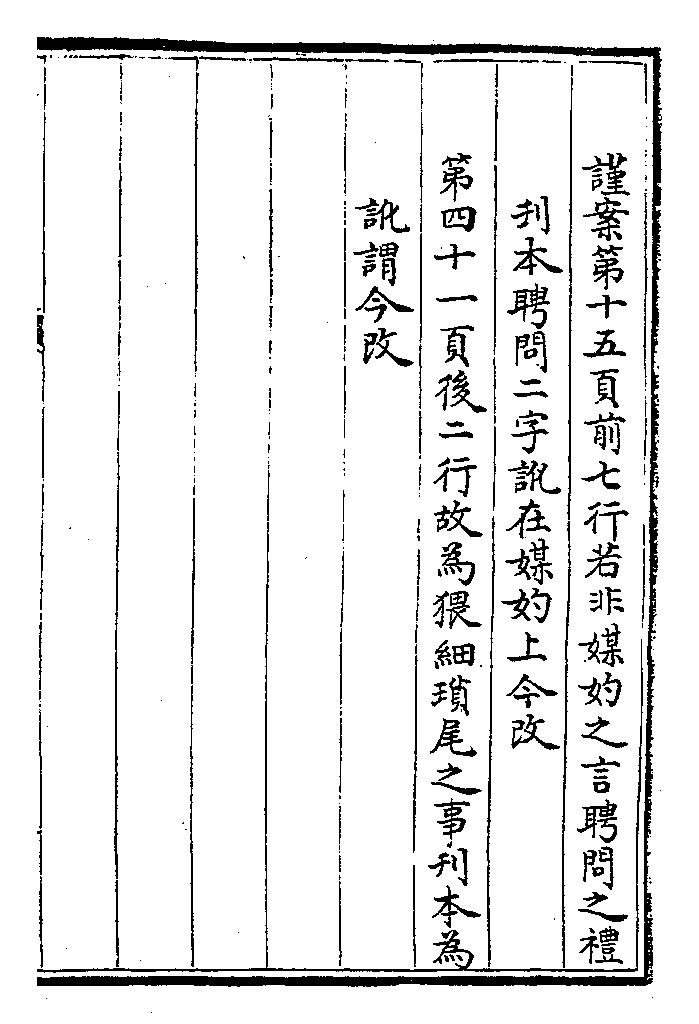 謹案第十五頁前七行若非媒妁之言聘問之禮
刋本聘問二字訛在媒妁上今改
第四十一頁後二行故為猥細瑣尾之事刋本為
訛謂今改